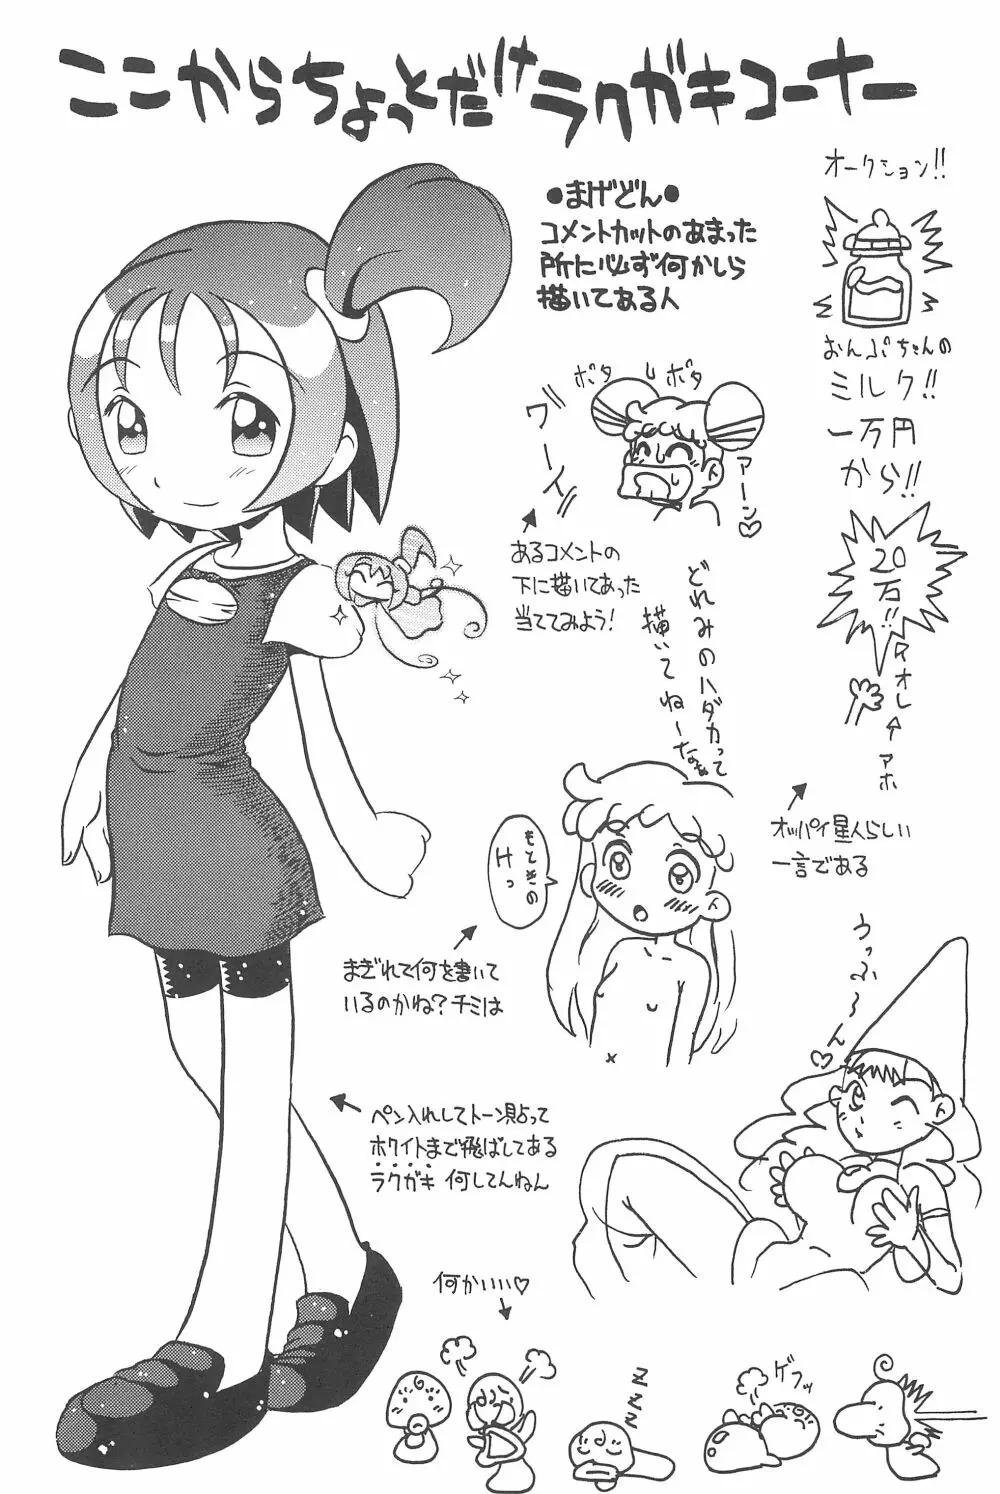 ここからちょっとだけラクガキコーナー
●まげどん●
コメントカットのあまった
所に必ず何かしら
描いてある人
オークション!!
おんぷちゃんの
ミルク!!
一万円
から!!
20
万!!
オレ
アホ
オッパイ星人らしい
一言である
ボタ
ボタ
ワーイ
アーン♡
あるコメントの
下に描いてあった
当ててみよう!
どれみのハダカって
描いてねーなぁ
もときの
Hっ
まぎれて何を書いて
いるのかね?チミは
うっふ〜ん♡
ペン入れしてトーン貼って
ホワイトまで飛ばしてある
ラクガキ 何してんねん
何かいい♡
ZZZZ
ゲフッ